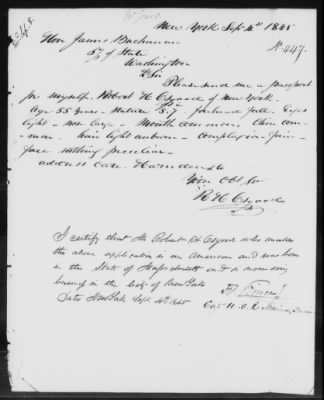 New York Sept 4th 1845
Hon James Buchanan
Sy of State
No 447.
Washington
D Sir
Please send me a passport
for myself. Robert H Osgood of New York.
Age 55 years - Stature 5.7 forehead full - Eyes
light - nose large - Mouth common - Chin com-
mon - hair light auburn - complexion fair -
face nothing peculiar -
address care Harnden & Co
Your Obt Svt
R H Osgood
I certify that Mr Robert H Osgood who makes
the above application is an American and was born
in the State of Massachusetts and is now doing
business in the City of New York
Date New York Sept 4th 1845